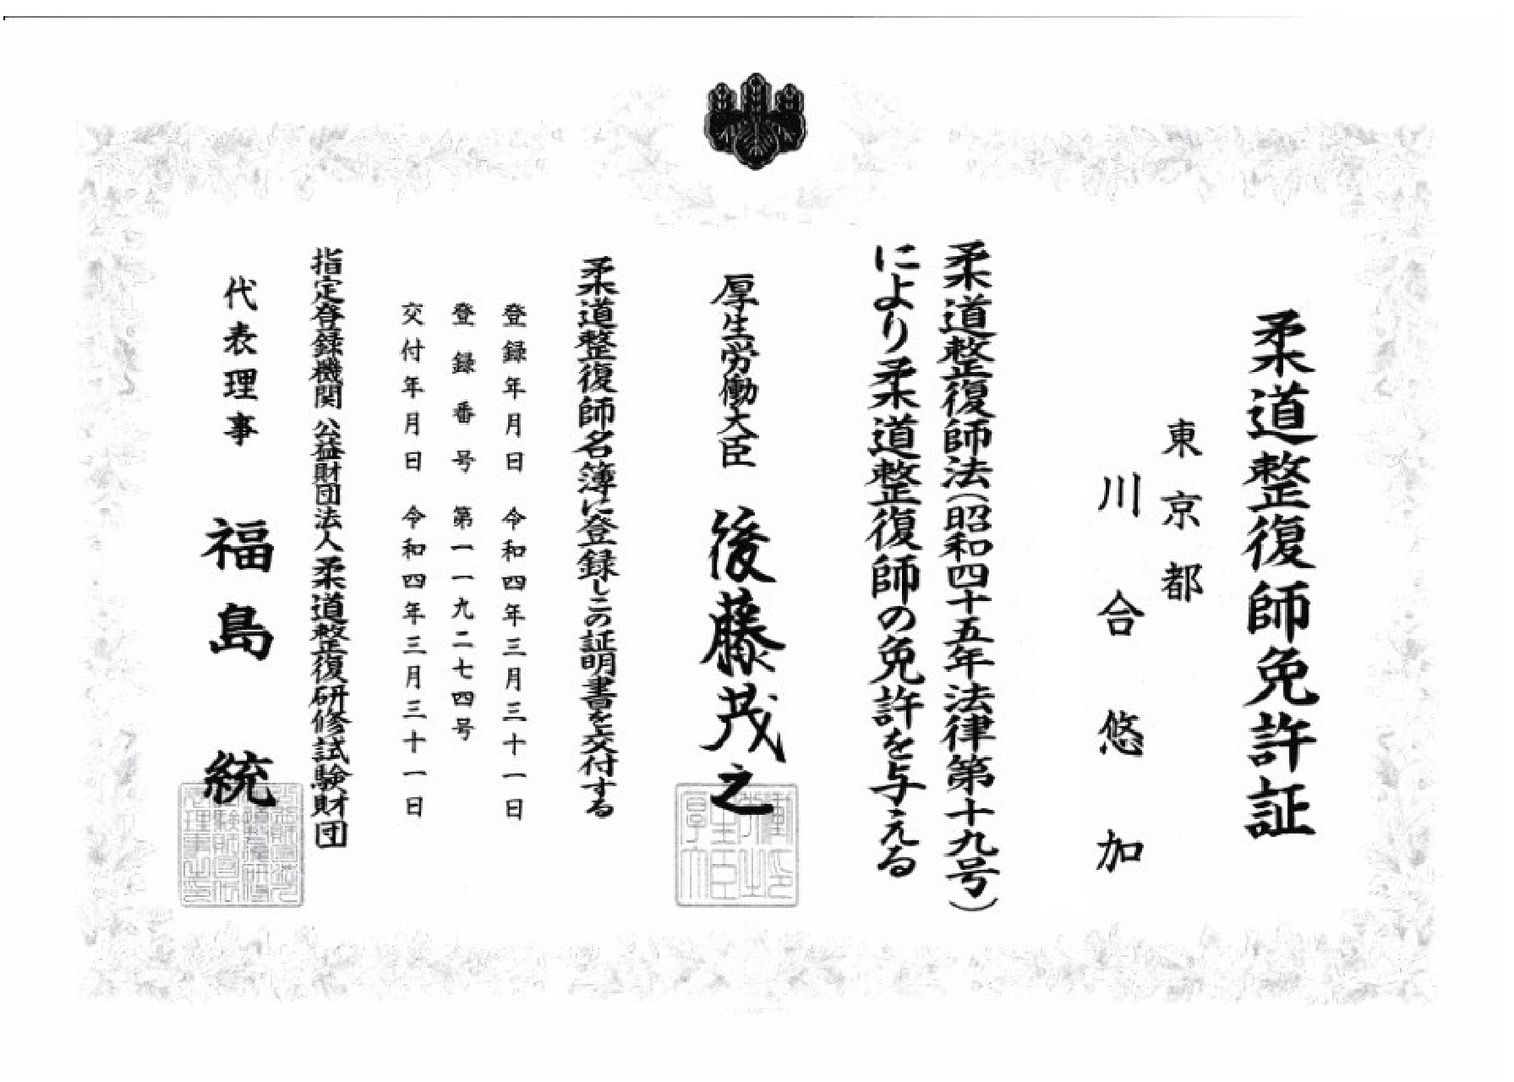 柔道整復師免許証
東京都
川合悠加
柔道整復師法(昭和四十五年法律第十九号)
により柔道整復師の免許を与える
厚生労働大臣 後藤茂之
柔道整復師名簿に登録しこの証明書を交付する
登録年月日 令和四年三月三十一日
登録番号 第一一九二七四号
交付年月日 令和四年三月三十一日
指定登録機関 公益財団法人 柔道整復研修試験財団
代表理事 福島統